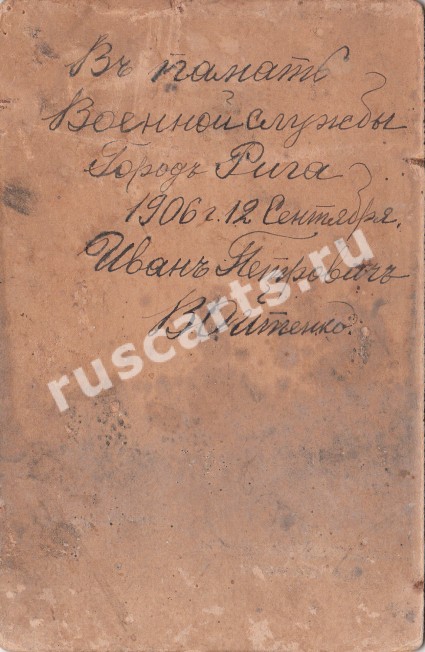 Въ память
Военной службы
Городъ Рига
1906 г. 12 Сентября.
Иванъ Петровичъ
ruscarts.ru